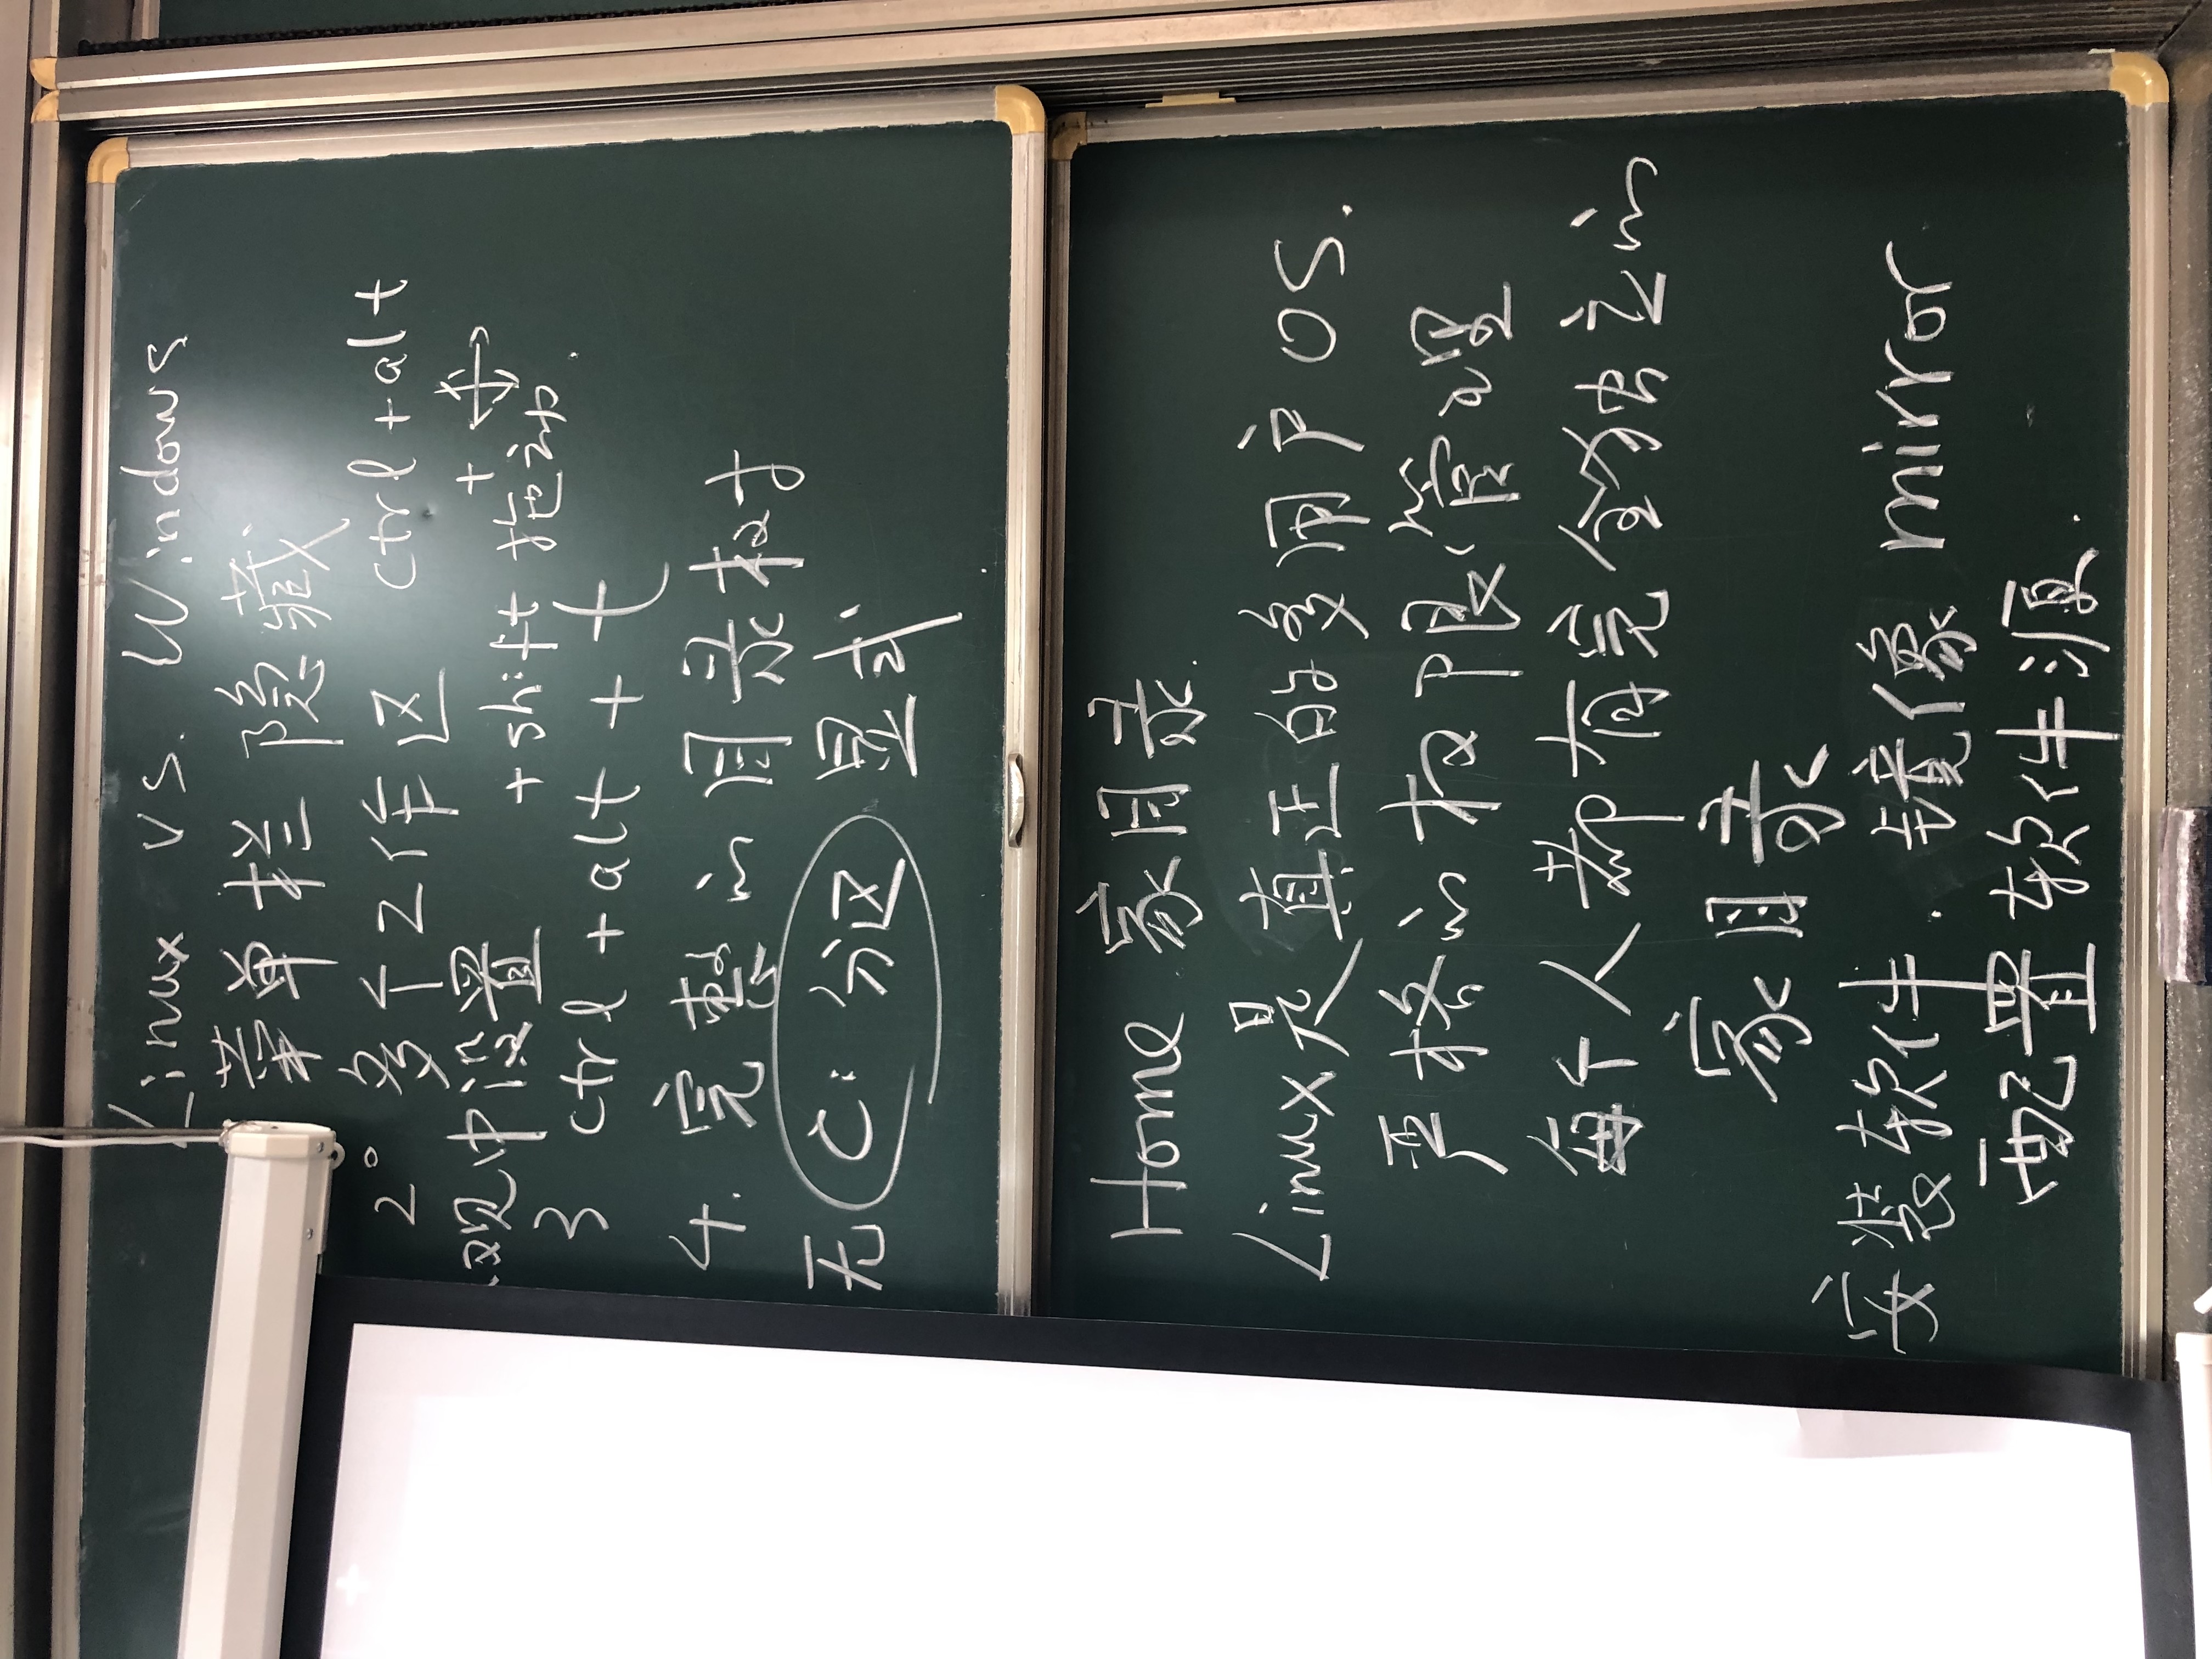 Linux vs. Windows
菜单栏 隐藏
2° 多个工作区 ctrl + alt
观中设置 + ↕↔
+ shift 拖动.
3 ctrl + alt + t
4. 完整的目录树
无 C: 分区 显式
Home 家目录.
Linux是真正的多用户OS.
严格的权限管理
每个人都有完全独立的
家目录
安装软件. 镜像 mirror
配置软件源.